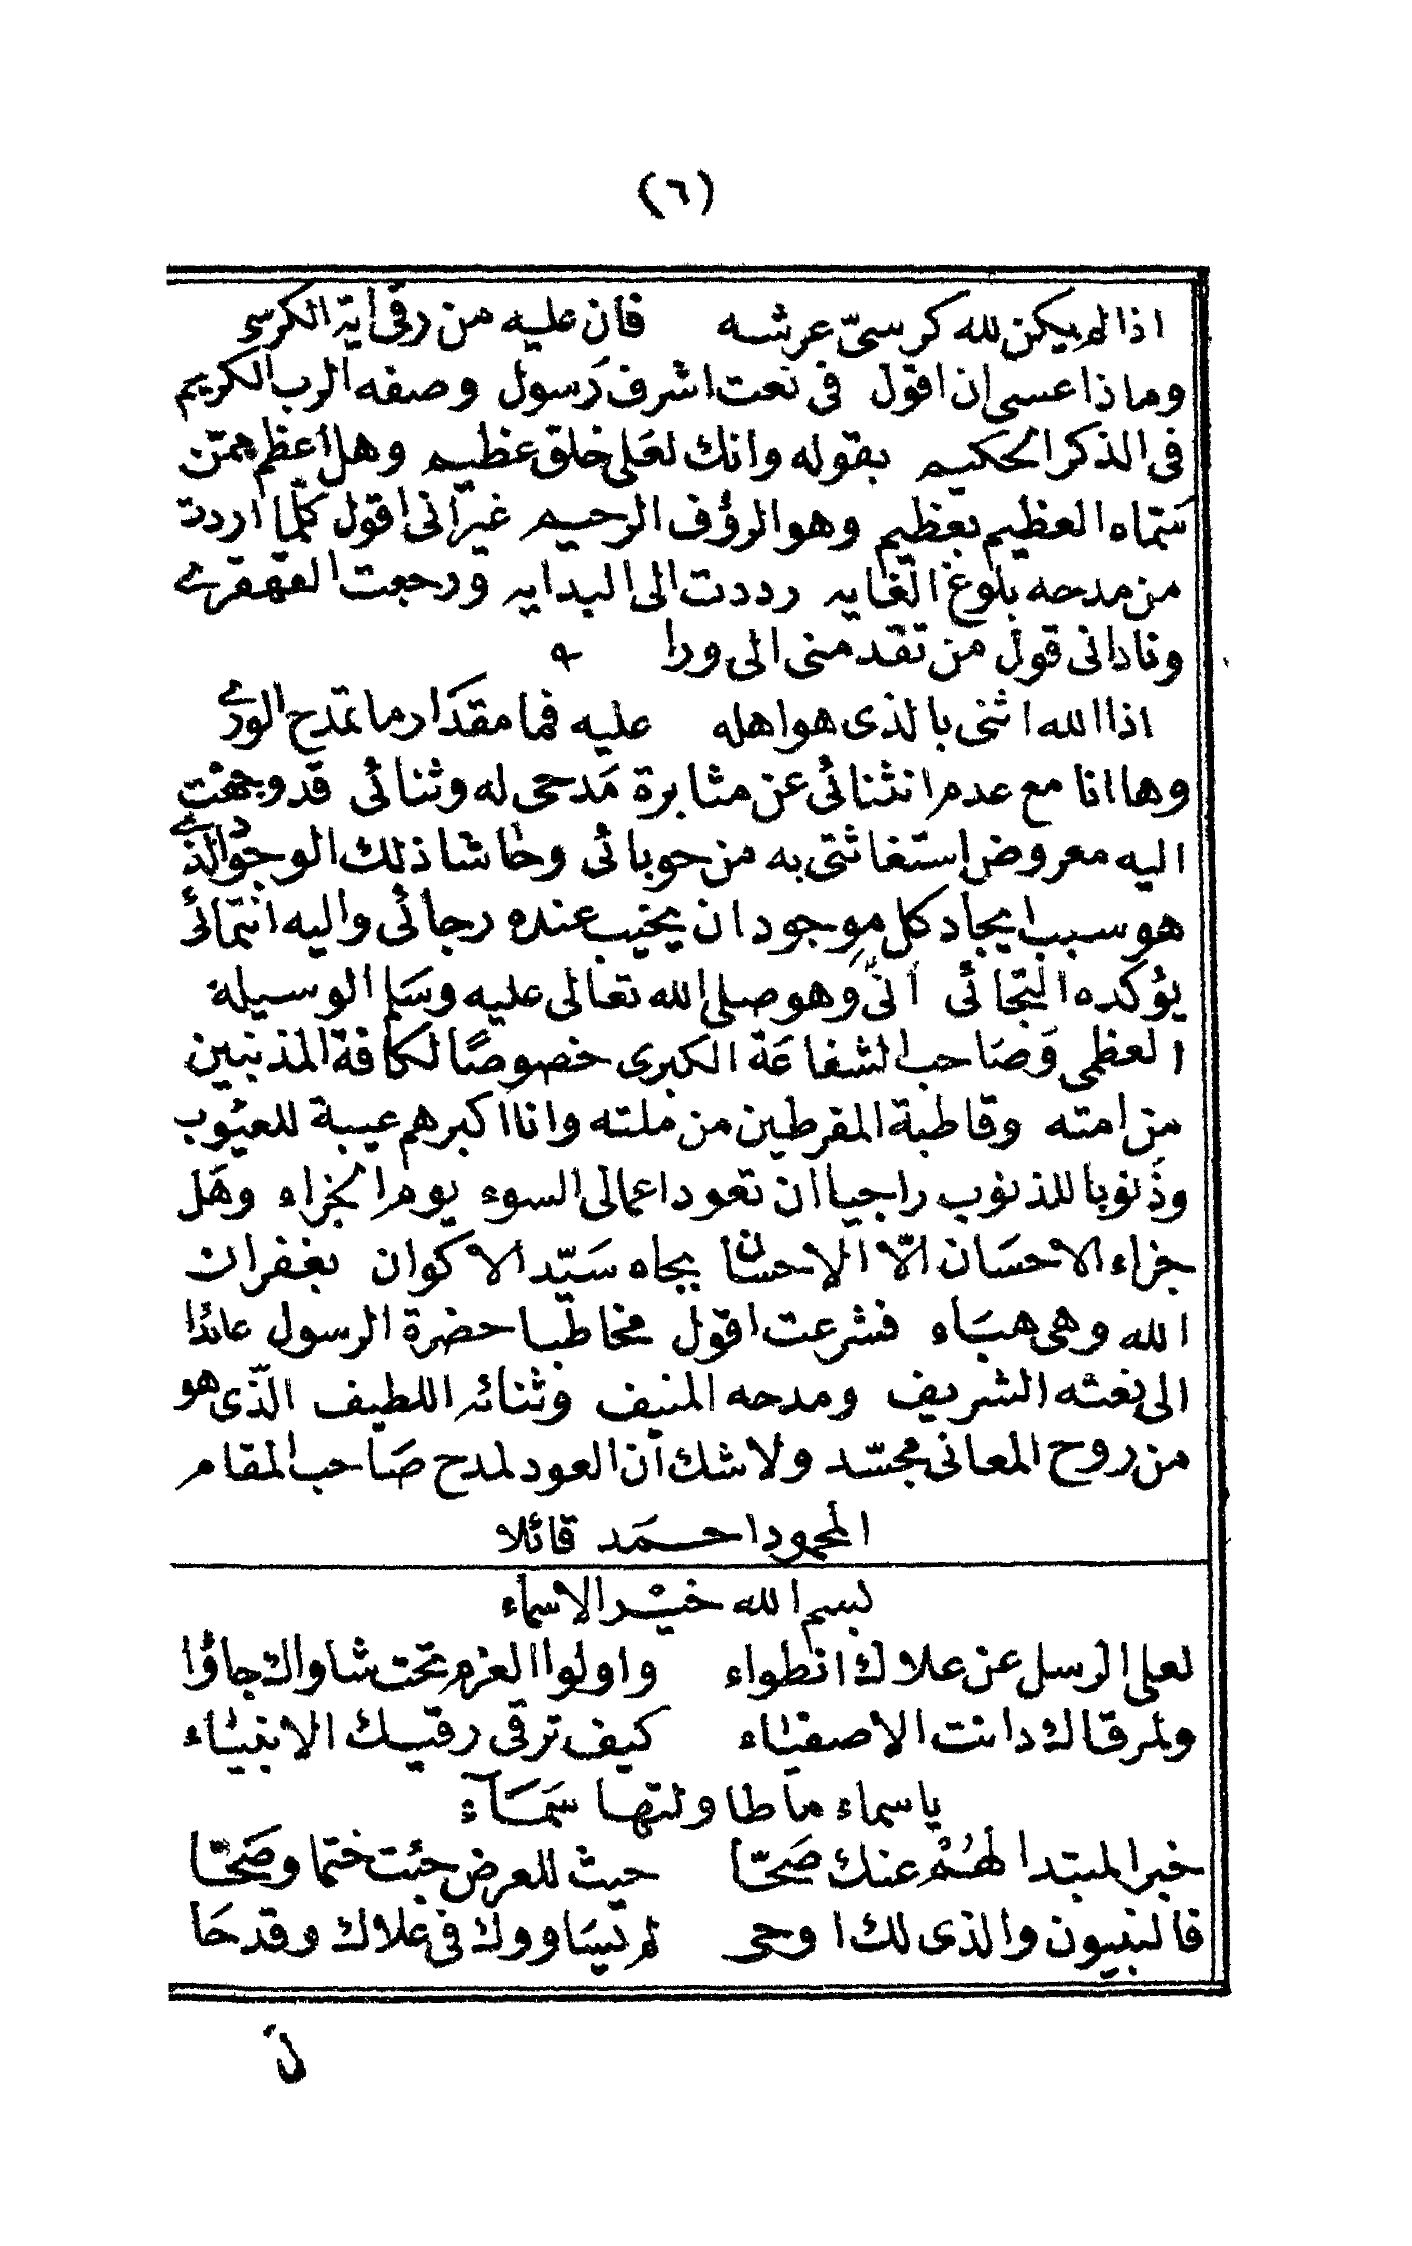 (٦)
اذا لم يكن لله كرسىّ عرشه فان عليه من رقى اية الكرسى
وماذا عسى ان اقول فى نعت اشرف رَسول وصفه الرب الكريم
فى الذكر الحكيم بقوله وانك لعَلى خلق عظيم وهل اعظم ممّن
سَمّاه العظيم بعظيم وهو الرؤف الرحيم غير انى اقول كلّما اردت
من مدحه بلوغ الغايه رددت الى البدايه ورجعت القهقرى
ونادانى قول من تقدمنى الى ورا
اذا الله اثنى بالذى هو اهله عليه فما مقدار ما تمدح الورى
وها انا مع عدم انثنائى عن مثابرة مَدحى له وثنائى قد وجهت
اليه معروض استغاثتى به من حوبائى وحاشا ذلك الوجود الذى
هو سبب ايجاد كل موجود ان يخيب عنده رجائى واليه انتمائى
يؤكده التجائى انّى وهو صلى الله تعالى عليه وسَلم الوسيلة
العظمى وَصَاحب الشفاعَة الكبرى خصوصًا لكافة المذنبين
من امته وقاطبة المفرطين من ملته وانا اكبرهم عيبة للعيوب
وذَنوبا للذنوب راجيا ان تعود اعمالى السوء يوم الجزاء وهَل
جزاء الاحسَان الّا الاحسان بجاه سَيّد الاكوان بغفران
الله وهى هبَاء فشرعت اقول مخاطبا حضرة الرسول عائدا
الى نعته الشريف ومدحه المنيف وثنائه اللطيف الّذى هو
من روح المعانى مجسّد ولا شك ان العود لمدح صَاحب المقام
المحمود احمَد قائلا
بسم الله خير الاسماء
لعلى الرسل عن علاك انطواء واولوا العزم تحت شاواك جاؤا
ولمرقاك دانت الاصفيَاء كيف ترقى رقيك الانبيَاء
ياسماء ما طاولتها سَمَآء
خبر المبتدا لهُمْ عنك صَحّا حيث للعرض جئت ختما وصَحّا
فالنبيون والذى لك اوحى لم يسَاووك فى علاك وقد حَا
ل